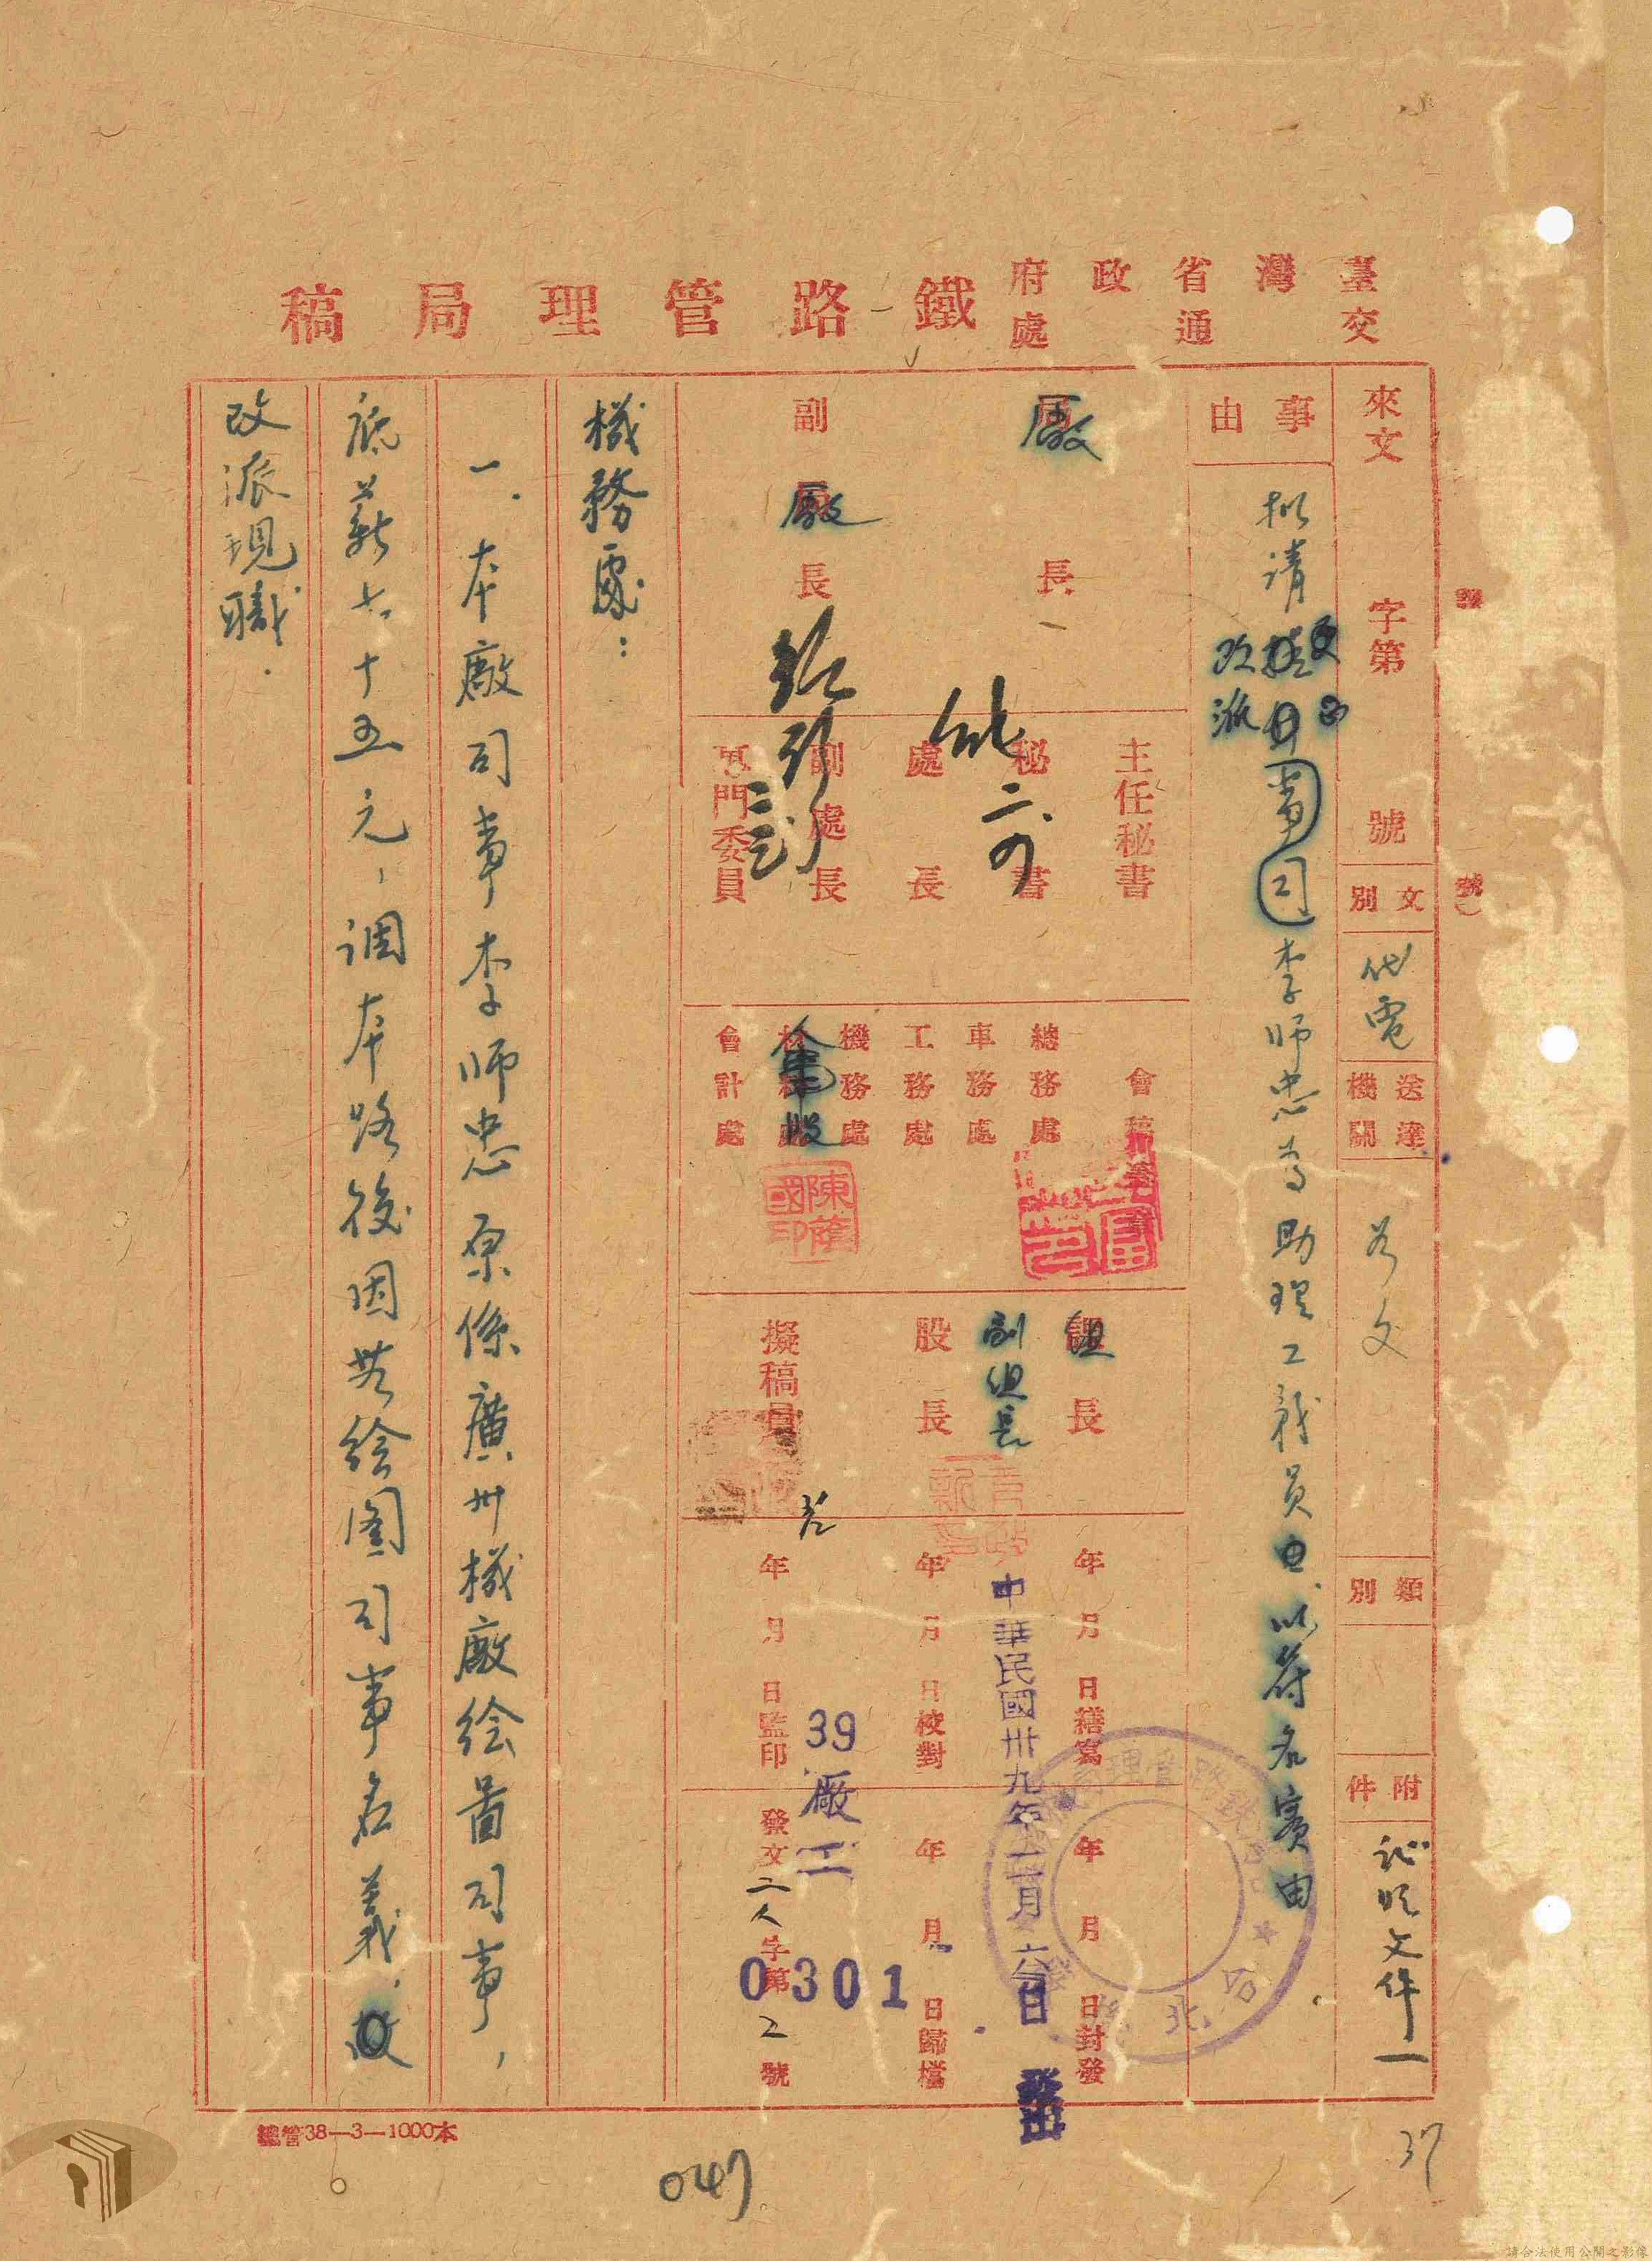 臺灣省政府
交通處
鐵路管理局稿
來文 字第 號
文別 代電
送達機關
類別
附件 証明文件一
事由
拟請改派司事李師忠為助理工務員以符名實由
廠長
副廠長
主任秘書
秘書
處長
副處長
專門委員
會稿
總務處
車務處
工務處
機務處
會計處
組長
副組長
股長
擬稿員
年 月 日繕寫
年 月 日校對
年 月 日監印
年 月 日封發
年 月 日歸檔
中華民國卅九年二月六日
發出
39廠工
發文 字第 號
0301
機務處：
一.本廠司事李師忠原係廣州機廠绘圖司事，
底薪六十五元，调本路後因無绘图司事名義，
改派現職.
總管38—3—1000本
047
37
請合法使用公開之影像